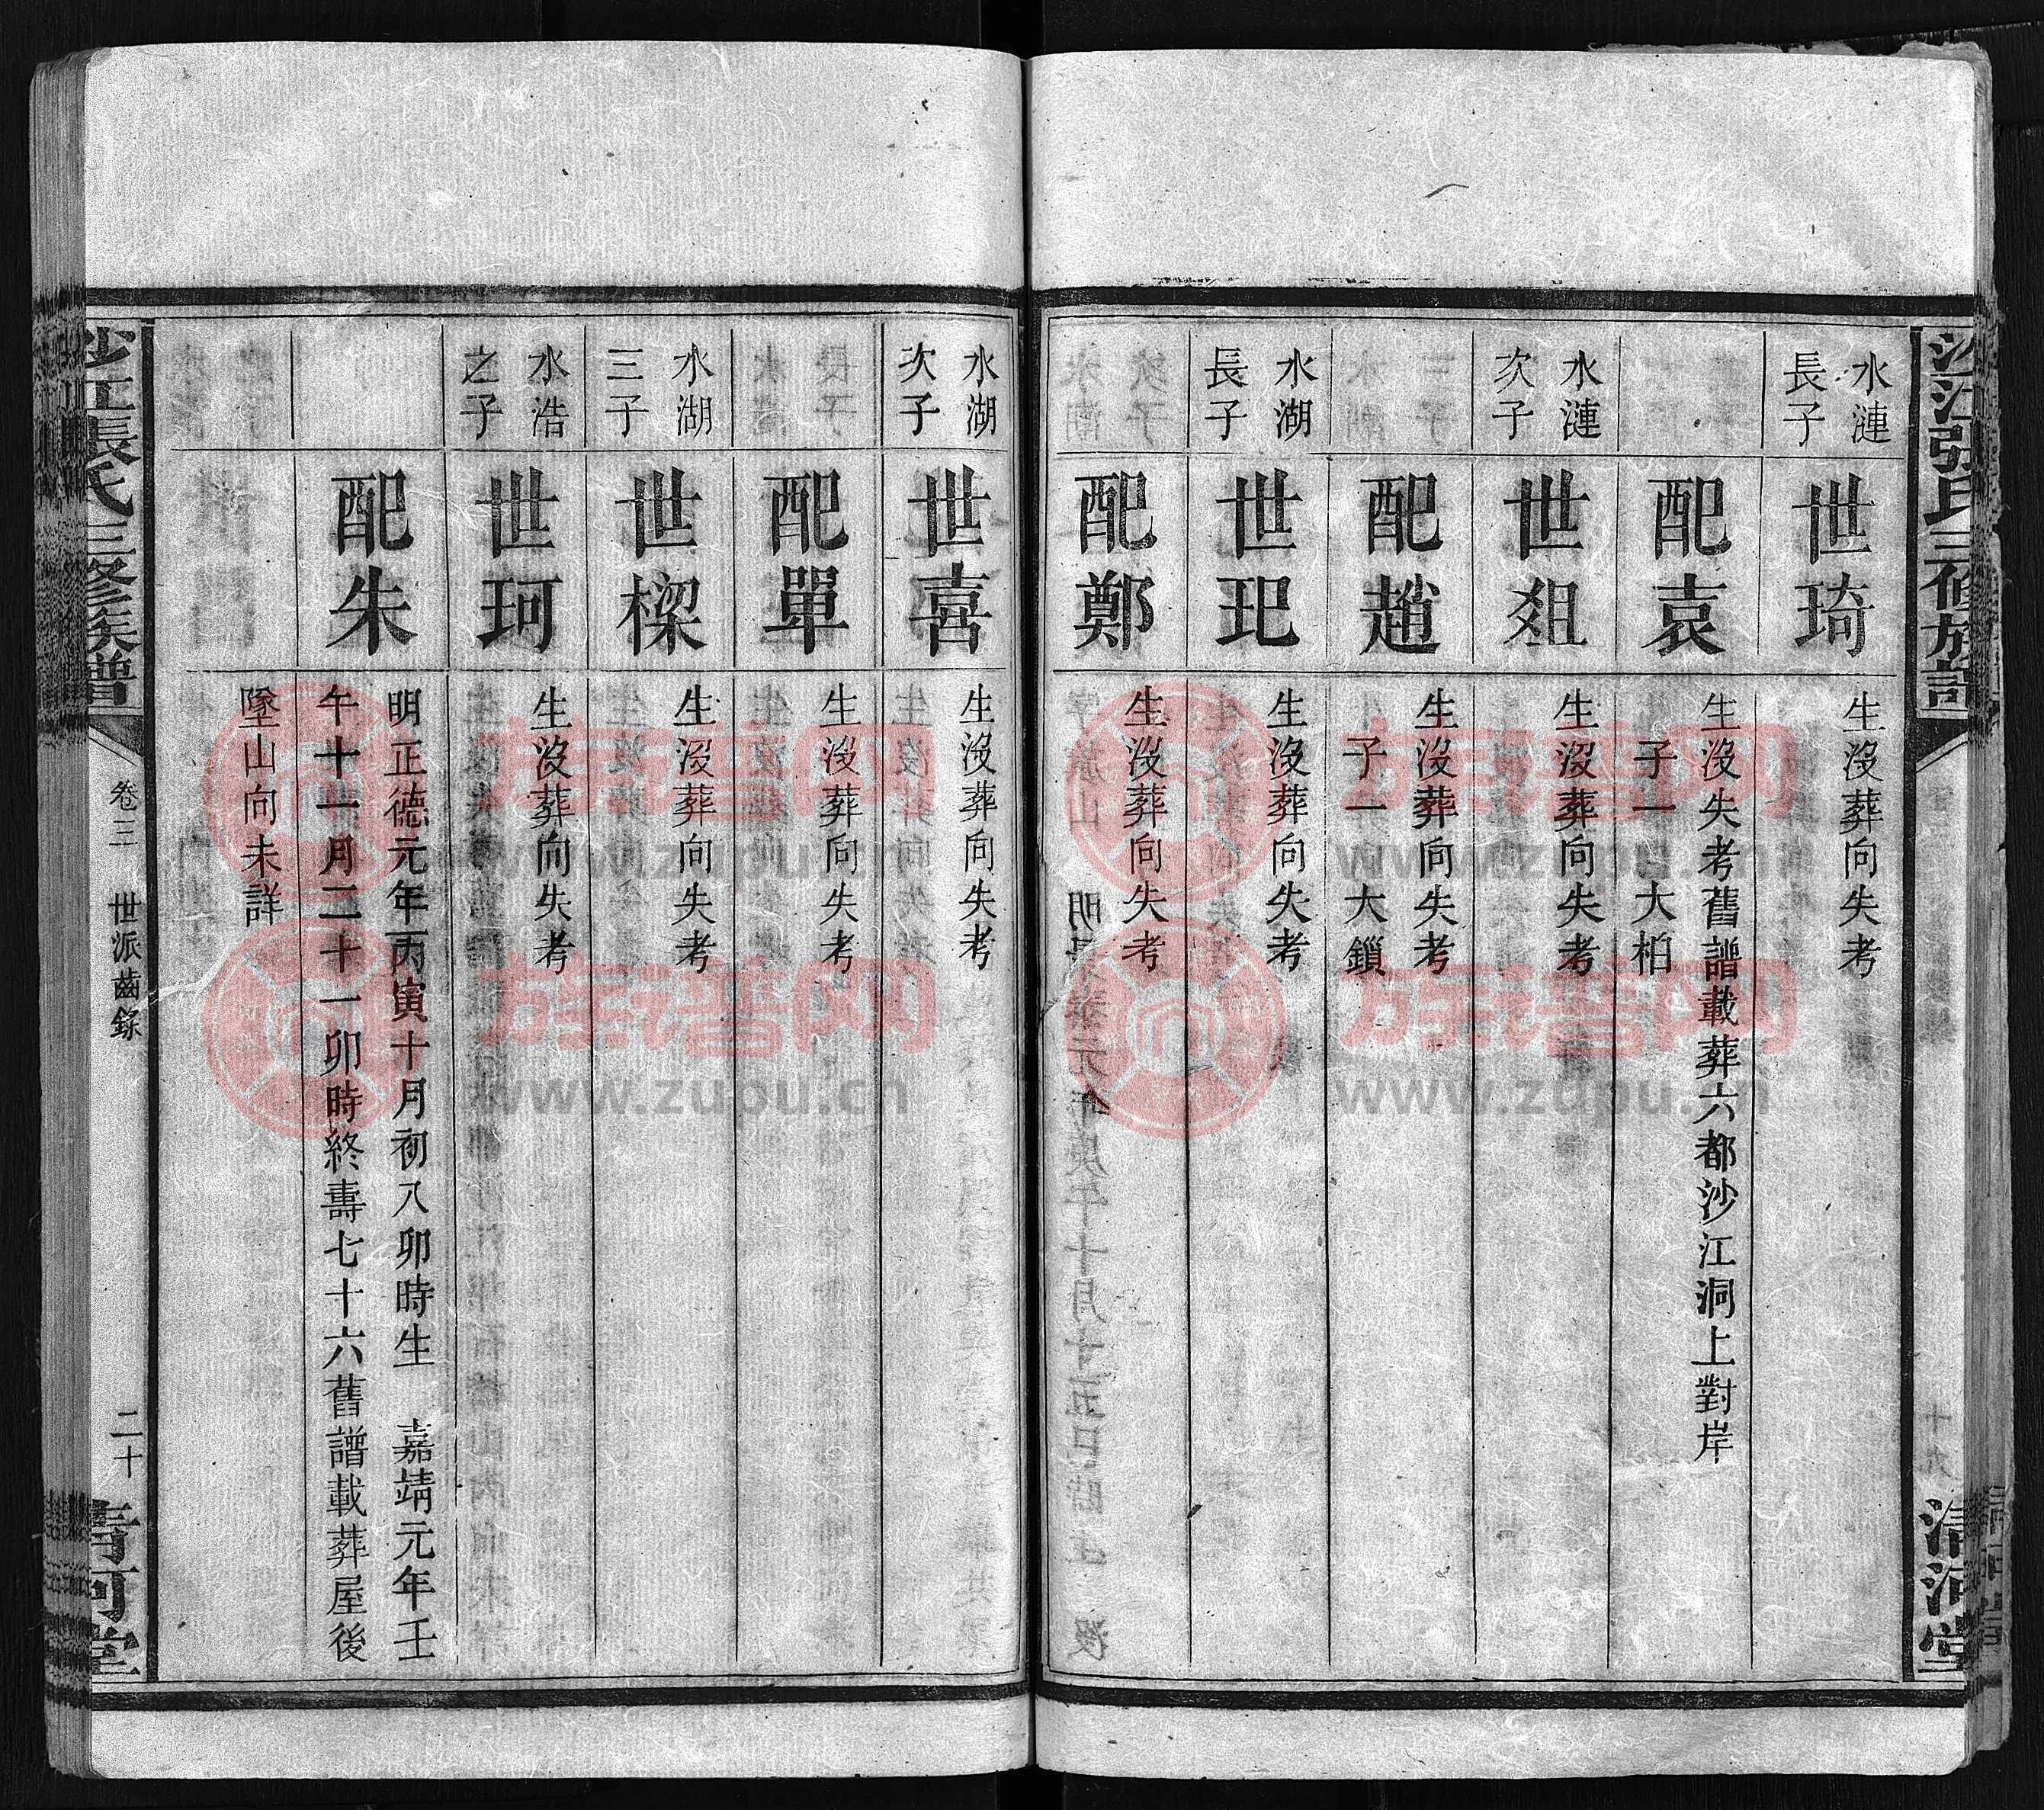 沙江張氏三修族譜
清河堂
水漣
長子
世琦
生沒葬向失考
配袁
生沒失考舊譜載葬六都沙江洞上對岸
子一 大柏
水漣
次子
世爼
生沒葬向失考
配趙
生沒葬向失考
子一 大鎖
水湖
長子
世玘
生沒葬向失考
配鄭
生沒葬向失考
水湖
次子
世喜
生沒葬向失考
配單
生沒葬向失考
水湖
三子
世樑
生沒葬向失考
水浩
之子
世珂
生沒葬向失考
配朱
明正德元年丙寅十月初八卯時生 嘉靖元年壬
午十一月二十一卯時終壽七十六舊譜載葬屋後
墜山向未詳
沙江張氏三修族譜
卷三 世派齒錄
二十
清河堂
族谱网
www.zupu.cn
族谱网
www.zupu.cn
族谱网
www.zupu.cn
族谱网
www.zupu.cn